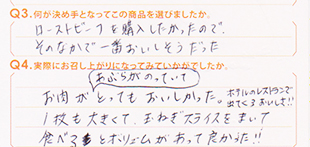 Q3. 何が決め手となってこの商品を選びましたか。
ローストビーフを購入したかったので、
そのなかで一番おいしそうだった
Q4. 実際にお召し上がりになってみていかがでしたか。
あぶらがのっていて
お肉がとってもおいしかった。ホテルのレストランで
出てくるおいしさ!!
1枚も大きくて、玉ねぎスライスをまいて
食べるとボリュームがあって良かった!!